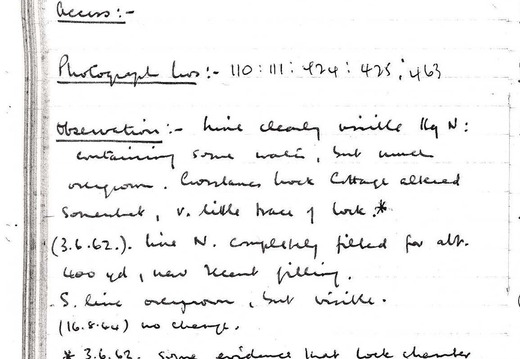 Access:-
Photograph Nos:- 110: 111: 424: 425; 463
Observation:- Line clearly visible N:
containing some water, but much
overgrown. Lock Cottage altered
somewhat, v. little trace of lock.*
(3.6.62.). Line N. completely filled for abt.
400 yd, new recent filling.
S. line overgrown, but visible.
(16.8.64) no change.
* 3.6.62. Some evidence that lock chamber